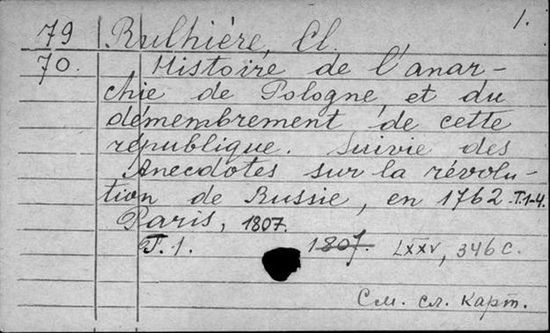 1.
79 Rulhiére, Cl.
70. Histoire de l'anar-
chie de Pologne, et du
démembrement de cette
république. Suivie des
Anecdotes sur la révolu-
tion de Russie, en 1762. T.1-4.
Paris, 1807.
T.1. 1807. LXXV, 346 c.
См. сл. карт.